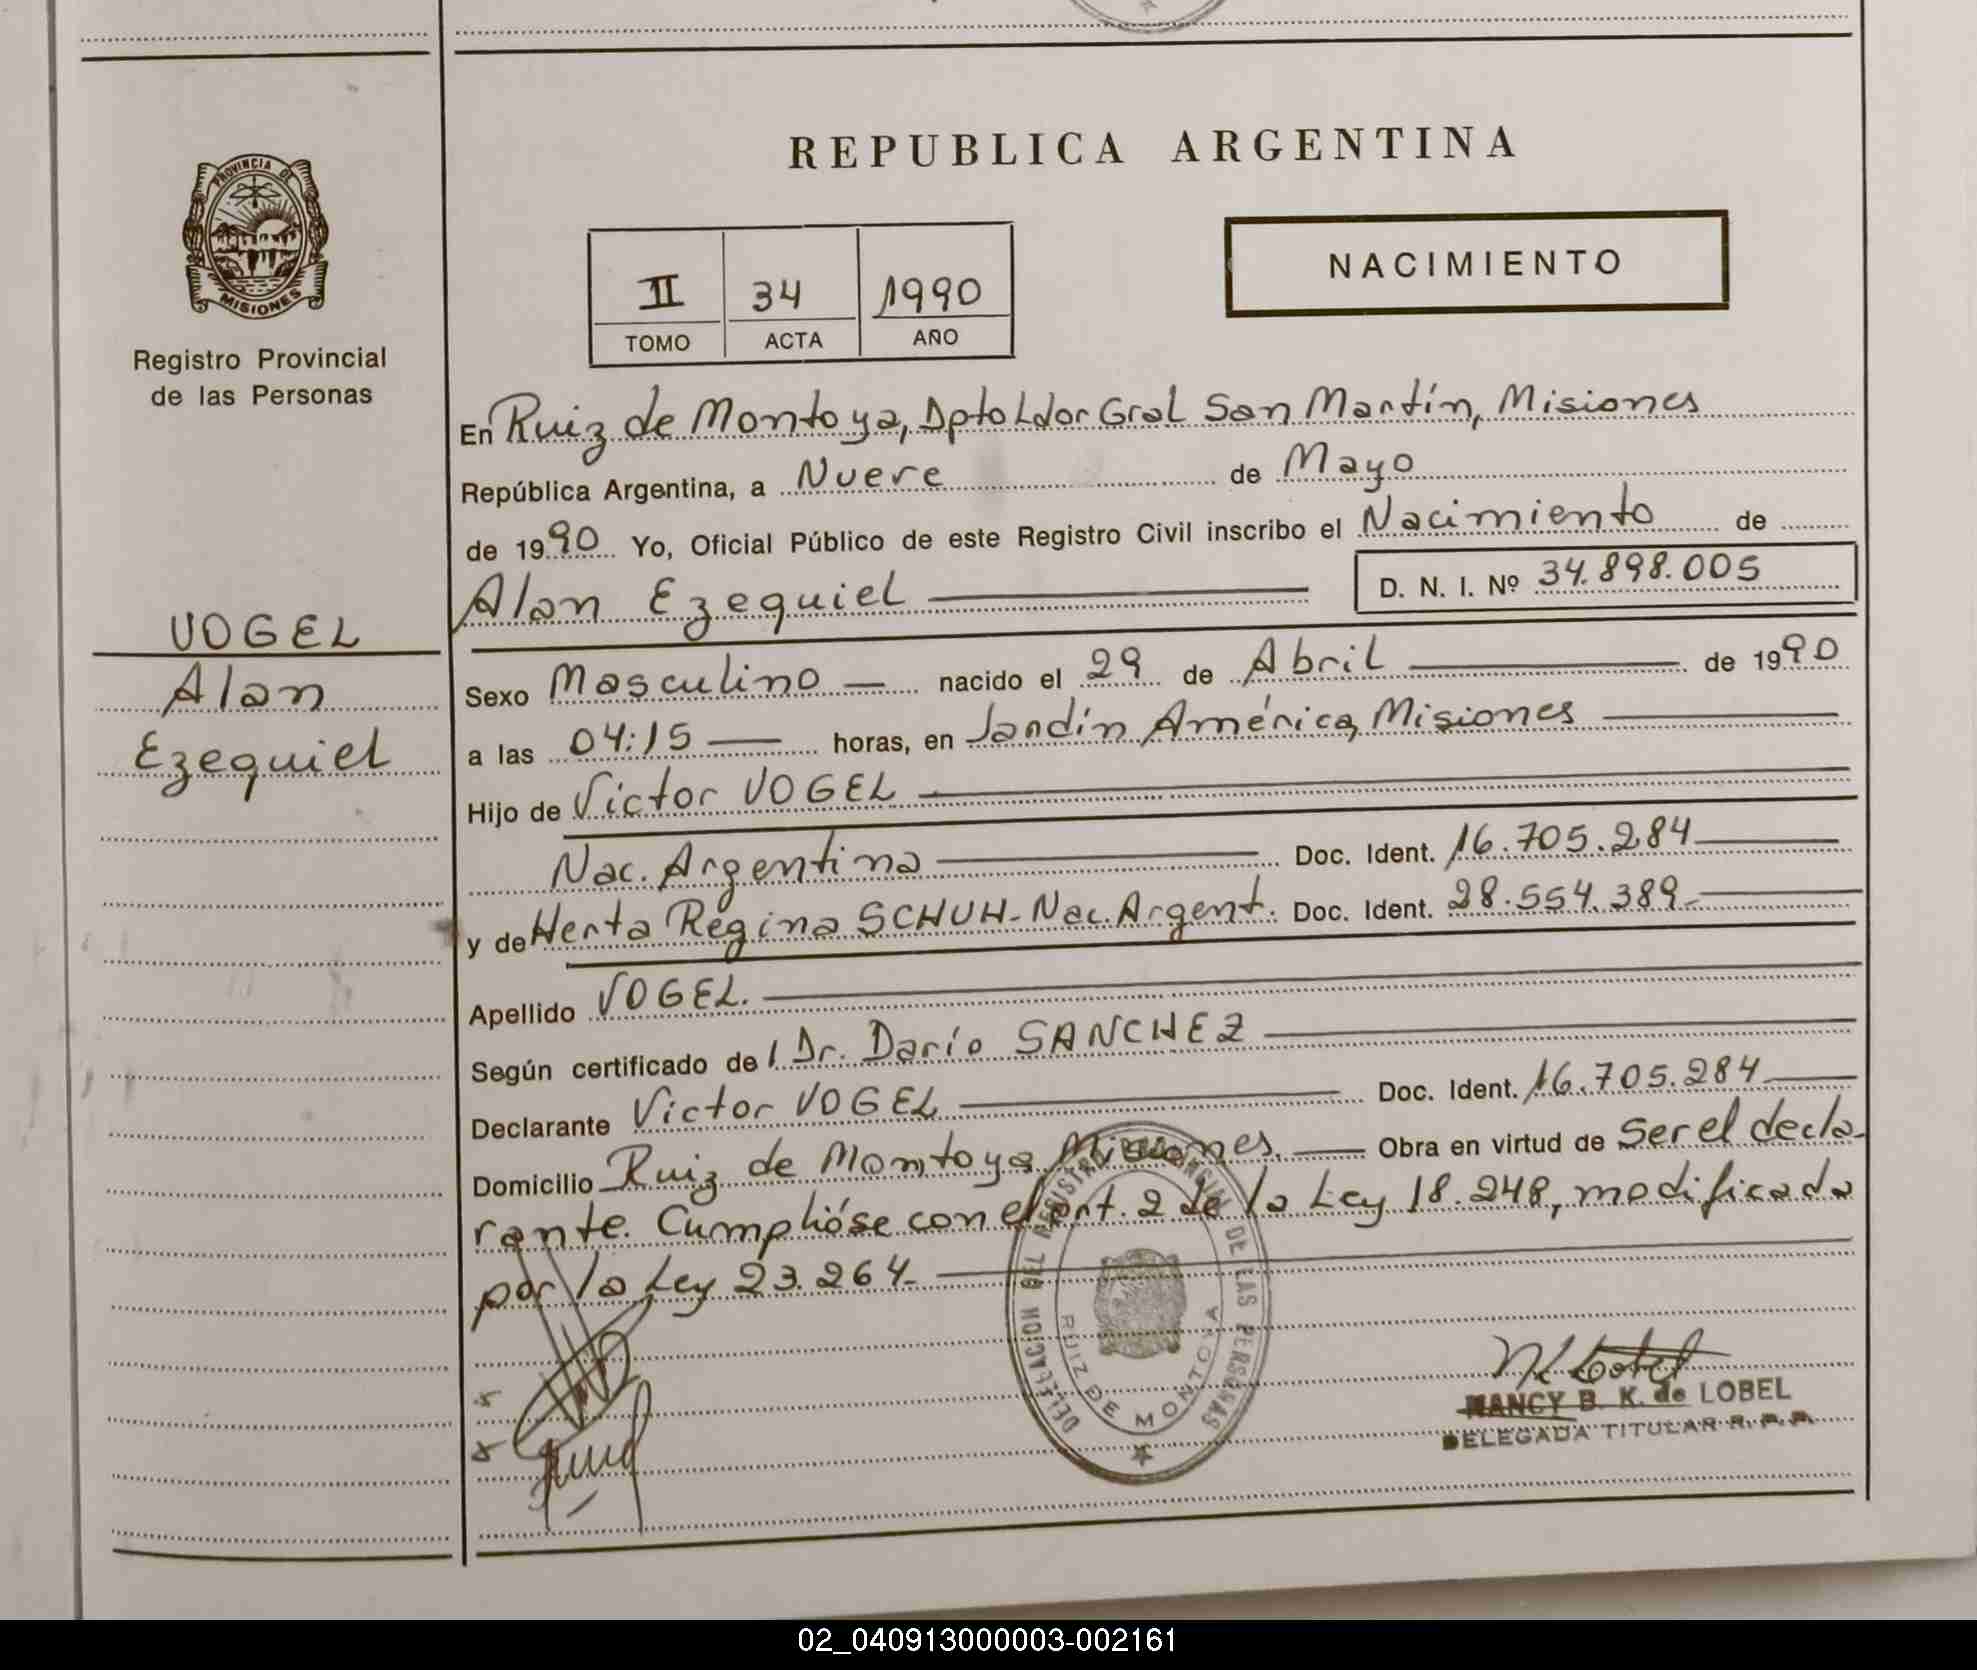 REPUBLICA ARGENTINA
PROVINCIA DE
MISIONES
Registro Provincial
de las Personas
II 34 1990
TOMO ACTA AÑO
NACIMIENTO
En Ruiz de Montoya, Dpto Ldor Gral San Martín, Misiones
República Argentina, a Nueve de Mayo
de 1990 Yo, Oficial Público de este Registro Civil inscribo el Nacimiento de
Alan Ezequiel D. N. I. Nº 34.898.005
VOGEL
Alan
Ezequiel
Sexo Masculino nacido el 29 de Abril de 1990
a las 04:15 horas, en Jardín América, Misiones
Hijo de Victor VOGEL
Nac. Argentina Doc. Ident. 16.705.284
y de Herta Regina SCHUH - Nac. Argent. Doc. Ident. 28.554.389
Apellido VOGEL.
Según certificado de l Dr. Darío SANCHEZ
Declarante Victor VOGEL Doc. Ident. 16.705.284
Domicilio Ruiz de Montoya Misiones. Obra en virtud de Ser el decla-
rante. Cumplióse con el art. 2 de la Ley 18.248, modificada
por la Ley 23.264.
DELEGACION DEL REGISTRO PROVINCIAL DE LAS PERSONAS
RUIZ DE MONTOYA
NANCY B. K. de LOBEL
DELEGADA TITULAR R. P. P.
02_040913000003-002161